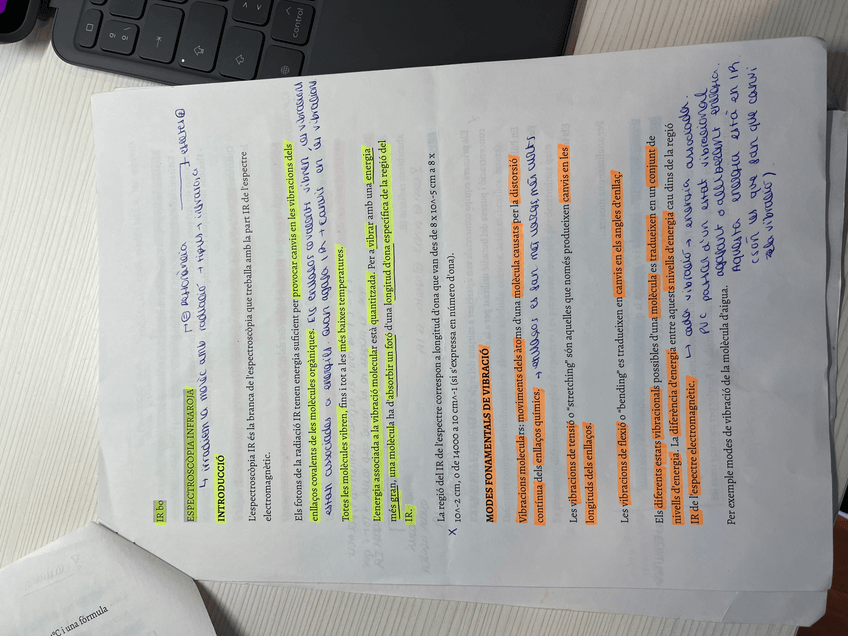 IR bo
ESPECTROSCOPIA INFRAROJA
INTRODUCCIÓ
L'espectroscòpia IR és la branca de l'espectroscòpia que treballa amb la part IR de l'espectre
electromagnètic.
Els fotons de la radiació IR tenen energia suficient per provocar canvis en les vibracions dels
enllaços covalents de les molècules orgàniques. Els enllaços covalents vibren, les vibracions
estan associades a energies quan agafa IR → canvis en les vibracions
Totes les molècules vibren, fins i tot a les més baixes temperatures.
L'energia associada a la vibració molecular està quantitzada. Per a vibrar amb una energia
més gran, una molècula ha d'absorbir un fotó d'una longitud d'ona específica de la regió del
IR.
La regió del IR de l'espectre correspon a longitud d'ona que van des de 8 x 10^-5 cm a 8 x
x 10^-2 cm, o de 14000 a 10 cm^-1 (si s'expressa en número d'ona).
MODES FONAMENTALS DE VIBRACIÓ
Vibracions moleculars: moviments dels àtoms d'una molècula causats per la distorsió
contínua dels enllaços químics. → enllaços es fan més llargs més curts
Les vibracions de tensió o "stretching" són aquelles que només produeixen canvis en les
longituds dels enllaços.
Les vibracions de flexió o "bending" es tradueixen en canvis en els angles d'enllaç
Els diferents estats vibracionals possibles d'una molècula es tradueixen en un conjunt de
nivells d'energia. La diferència d'energia entre aquests nivells d'energia cau dins de la regió
IR de l'espectre electromagnètic. ↳ cada vibració → energia associada.
puc passar d'un estat vibracional
a l'altre
Aquesta energia està en IR
(són les que fan que canvi
la vibració)
Per exemple modes de vibració de la molècula d'aigua.
control
ºC i una fórmula